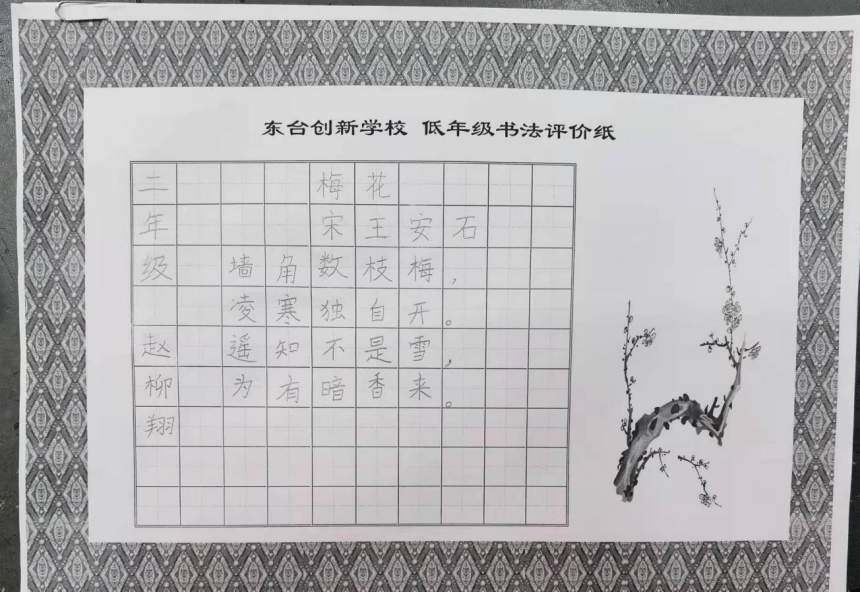 东台创新学校 低年级书法评价纸
二年级 赵柳翔
梅花
宋王安石
墙角数枝梅，
凌寒独自开。
遥知不是雪，
为有暗香来。